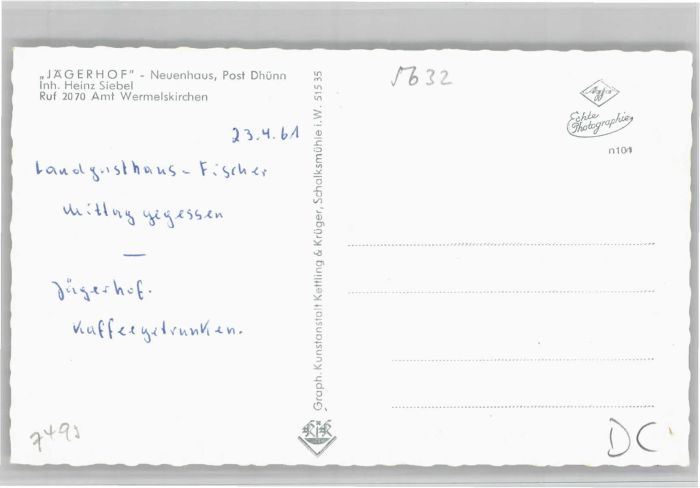 „JÄGERHOF" - Neuenhaus, Post Dhünn
Inh. Heinz Siebel
Ruf 2070 Amt Wermelskirchen
5632
Agfa
Echte
Photographie
n104
23.4.61
Landgasthaus - Fischer
Mittag gegessen
—
Jägerhof.
Kaffeegetrunken.
Graph. Kunstanstalt Kettling & Krüger, Schalksmühle i.W. 51535
DC